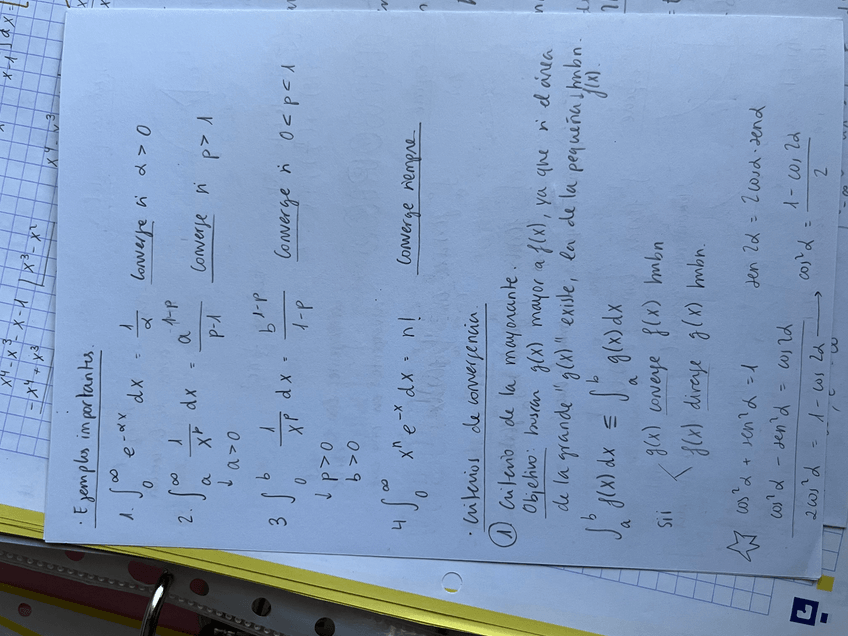 · Ejemplos importantes.
1. ∫₀^∞ e^(-αx) dx = 1/α   converge si α > 0
2. ∫ₐ^∞ 1/x^p dx = a^(1-p)/(p-1)   converge si p > 1
↓ a>0
3 ∫₀^b 1/x^p dx = b^(1-p)/(1-p)   converge si 0 < p < 1
↓ p>0
b>0
4 ∫₀^∞ x^n e^(-x) dx = n!   converge siempre
· Criterios de convergencia
① Criterio de la mayorante.
Objetivo: buscar g(x) mayor a f(x), ya que si el área
de la grande "g(x)" existe, la de la pequeña tmbn.
f(x).
∫ₐ^b f(x) dx ≤ ∫ₐ^b g(x) dx
Sii < g(x) converge f(x) tmbn
f(x) diverge g(x) tmbn.
☆ cos²α + sen²α = 1   sen 2α = 2cosα·senα
cos²α - sen²α = cos 2α
2cos²α = 1 - cos 2α → cos²α = (1 - cos 2α)/2
x⁴-x³-x-1 | x³-x²
-x⁴+x³